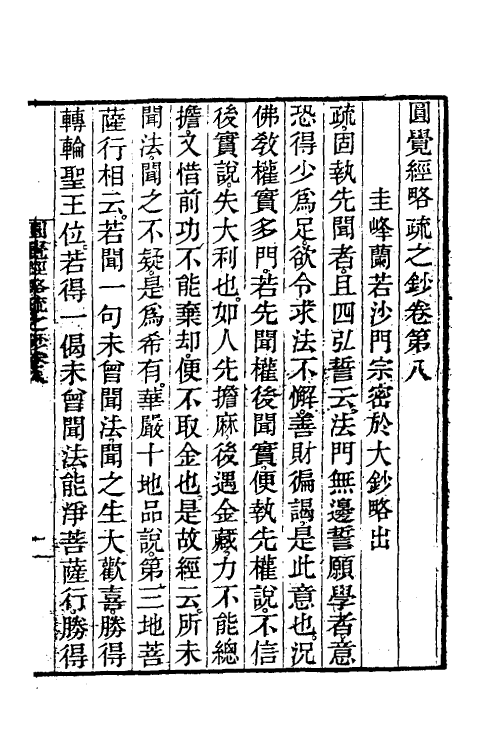 圓覺經略疏之鈔卷第八
圭峰蘭若沙門宗密於大鈔略出
疏固執先聞者。且四弘誓云。法門無邊誓願學者。意
恐得少爲足。欲令求法不懈。善財徧謁。是此意也。況
佛教權實多門。若先聞權後聞實。便執先權說。不信
後實說。失大利也。如人先擔麻後遇金藏。力不能總
擔。又惜前功。不能棄却。便不取金也。是故經云。所未
聞法。聞之不疑。是爲希有。華嚴十地品說。第三地菩
薩行相云。若聞一句未曾聞法。聞之生大歡喜。勝得
轉輪聖王位。若得一偈未曾聞法。能淨菩薩行。勝得
圓覺經略疏之鈔卷八